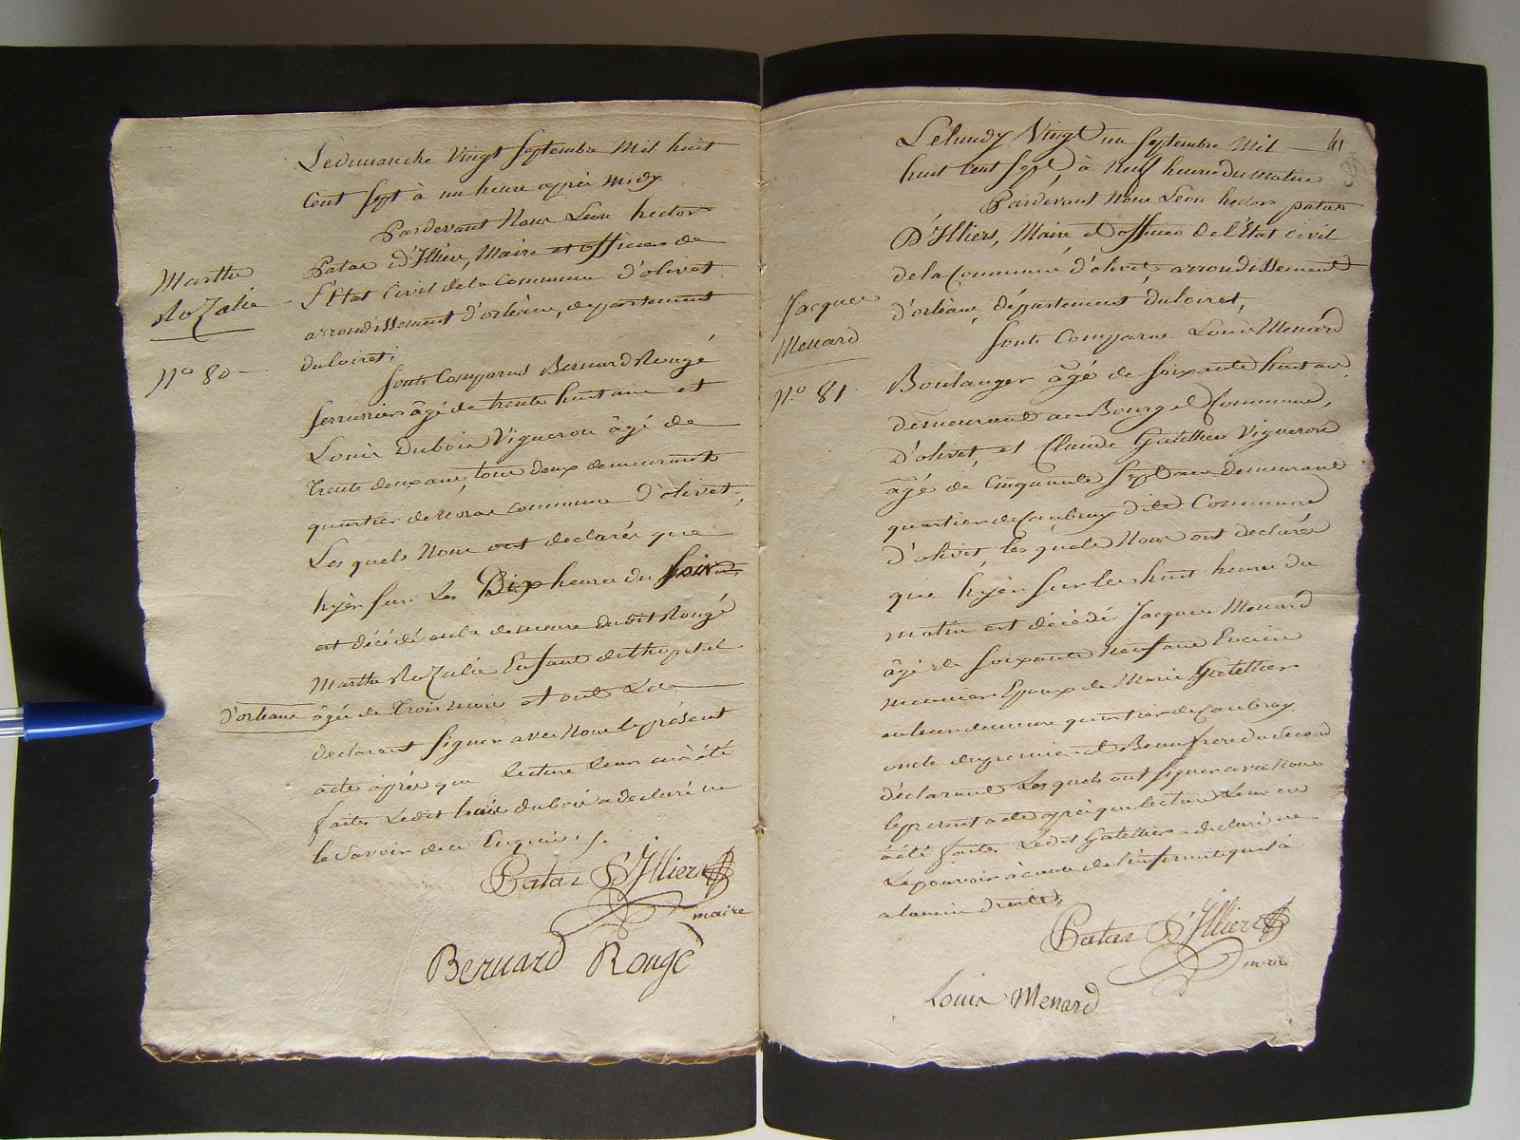 Marthe
Rozalie
No 80
Le dimanche Vingt Septembre Mil huit
Cent Sept à un heure après midy
Pardevant Nous Leon hector
Patas d'Illiers, Maire et officier de
l'Etat Civil de la Commune d'olivet
arrondissement d'orléans, departement
du loiret;
Sont Comparus Bernard Rougé
Serrurier âgé de trente huit ans et
Louis Dubois Vigneron âgé de
trente deux ans, tous deux demeurant
quartier de commune d'olivet,
Les quels Nous ont declarés que
hyer sur Les Dix heures du Soir
est décédé en la demeure dudit Rougé
Marthe Rozalie Enfant de l'hopital
d'orleans âgée de trois mois et ont Les
declarant Signer avec Nous le présent
acte après que lecture Leur en à été
faite Ledit Louis dubois a declaré ne
le Savoir de ce Enquis /.
Patas D'Illiers
maire
Bernard Rougé
41
Jacques
Menard
No. 81
Le lundy Vingt un Septembre Mil
huit Cent Sept, à Neuf heures du matin
Pardevant Nous Leon hector patas
D'Illiers, Maire et officier de l'Etat Civil
de la Commune d'olivet arrondissement
d'orléans, département du loiret,
Sont Comparus Louis Menard
Boulanger âgé de soixante huit ans
demeurant au Bourg et Commune
d'olivet et Claude Gatellier Vigneron
âgé de Cinquante Sept ans demeurant
quartier de Caubray dite Commune
d'olivet, les quels Nous ont declarés
que hyer sur les huit heures du
matin est décédé Jacques Menard
âgé de soixante neuf ans Encien
meunier Epoux de Marie Gatellier
en leur demeure quartier de Caubray
oncle du premier et Beaufrere du Second
déclarant Les quels ont Signer avec Nous
le present acte après que lecture Leur en
à été faite Ledit Gatellier a declaré ne
Le pouvoir à cause de l'infirmité qu'il à
a la main droite,
Patas D'Illiers
maire
Louis Menard